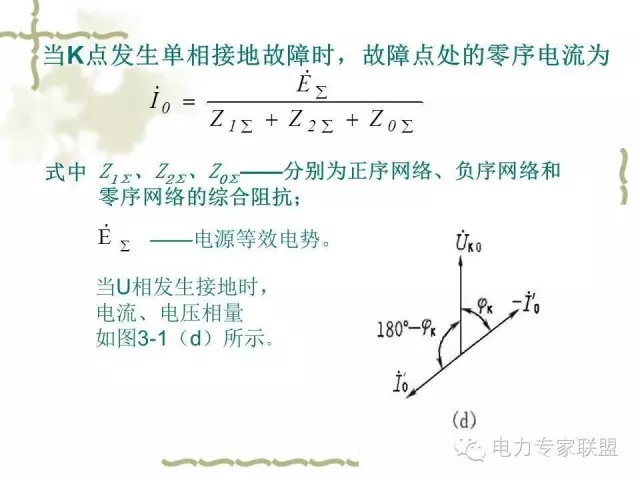 当K点发生单相接地故障时，故障点处的零序电流为
İ₀ = Ė_Σ / (Z_1Σ + Z_2Σ + Z_0Σ)
式中 Z_1Σ、Z_2Σ、Z_0Σ——分别为正序网络、负序网络和
零序网络的综合阻抗；
Ė_Σ ——电源等效电势。
当U相发生接地时，
电流、电压相量
如图3-1（d）所示。
U̇_K0
φ_K
-İ′₀
180°-φ_K
İ′₀
(d)
电力专家联盟